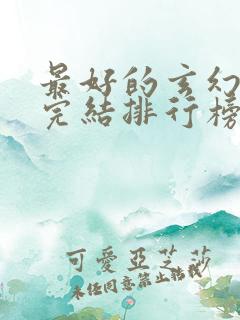 最好的玄幻
完結排行榜
可愛亞芝莎
未任同意禁止轉載